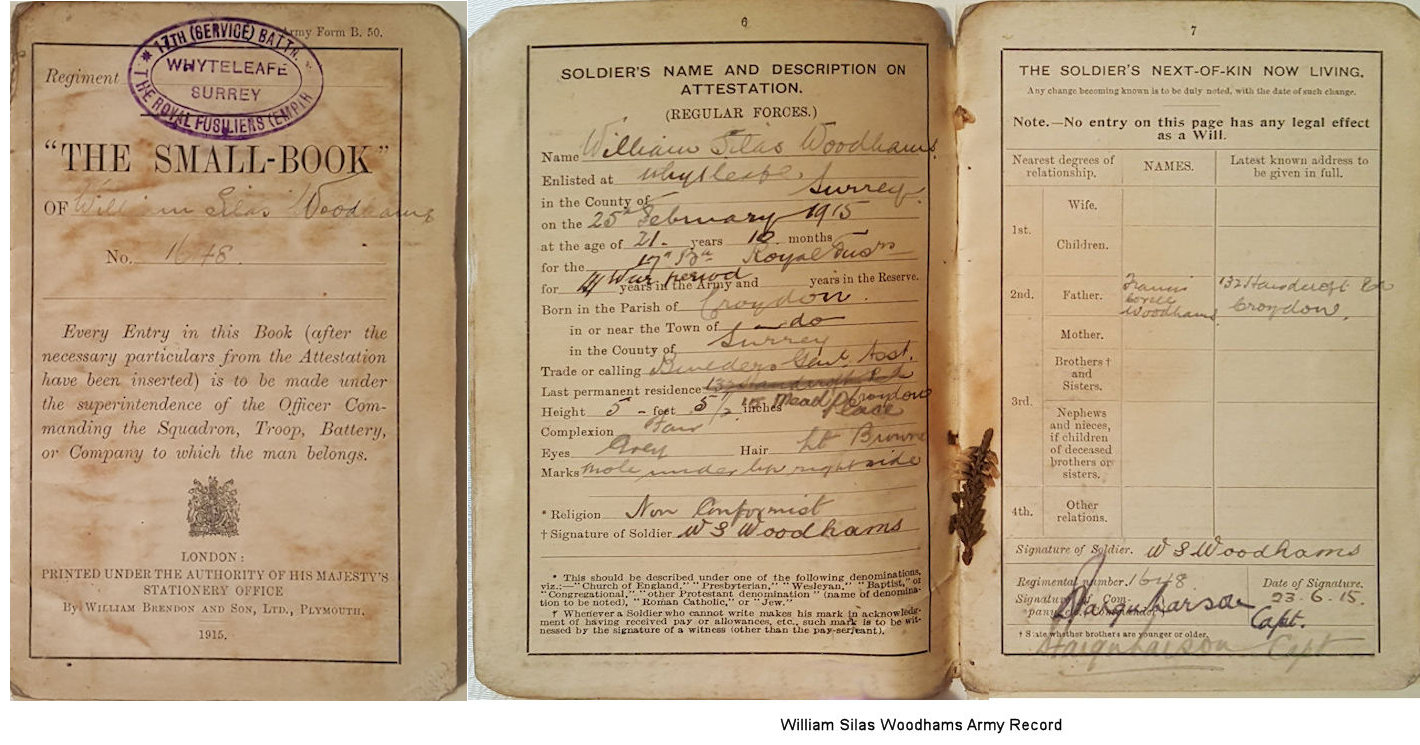 Army Form B. 50.
17TH (SERVICE) BATTN.
WHYTELEAFE
SURREY
THE ROYAL FUSILIERS (EMPIR
Regiment
"THE SMALL-BOOK"
OF William Silas Woodhams
No. 1648.
Every Entry in this Book (after the
necessary particulars from the Attestation
have been inserted) is to be made under
the superintendence of the Officer Com-
manding the Squadron, Troop, Battery,
or Company to which the man belongs.
LONDON:
PRINTED UNDER THE AUTHORITY OF HIS MAJESTY'S
STATIONERY OFFICE
By WILLIAM BRENDON AND SON, LTD., PLYMOUTH.
1915.
6
SOLDIER'S NAME AND DESCRIPTION ON
ATTESTATION.
(REGULAR FORCES.)
Name William Silas Woodhams.
Enlisted at Whyteleafe,
in the County of Surrey.
on the 25th February 1915
at the age of 21 - years 10 months
for the 17th Bn Royal Fusrs
for War period years in the Army and years in the Reserve.
Born in the Parish of Croydon.
in or near the Town of - do
in the County of Surrey
Trade or calling Builders Genl. Asst.
Last permanent residence 132 Handcroft Rd Croydon
Mead Place
Height 5 - feet 5 1/2 inches
Complexion Fair
Eyes Grey Hair Lt Brown
Marks Mole under lip right side
* Religion Non Conformist
† Signature of Soldier W S Woodhams
* This should be described under one of the following denominations,
viz.:—"Church of England," "Presbyterian," "Wesleyan," "Baptist," or
"Congregational," "other Protestant denomination" (name of denomina-
tion to be noted), "Roman Catholic," or "Jew."
† Whenever a Soldier who cannot write makes his mark in acknowledg-
ment of having received pay or allowances, etc., such mark is to be wit-
nessed by the signature of a witness (other than the pay-serjeant).
7
THE SOLDIER'S NEXT-OF-KIN NOW LIVING.
Any change becoming known is to be duly noted, with the date of such change.
Note.—No entry on this page has any legal effect
as a Will.
Nearest degrees of
relationship.
NAMES.
Latest known address to
be given in full.
1st.
Wife.
Children.
2nd.
Father.
Francis
Woodhams
132 Handcroft Rd
Croydon.
Mother.
3rd.
Brothers †
and
Sisters.
Nephews
and nieces,
if children
of deceased
brothers or
sisters.
4th.
Other
relations.
Signature of Soldier. W S Woodhams
Regimental number. 1648
Date of Signature.
23.6.15.
Signature of Com-
pany, etc., Commander
Farquharson
Capt.
† State whether brothers are younger or older.
Farquharson Capt
William Silas Woodhams Army Record